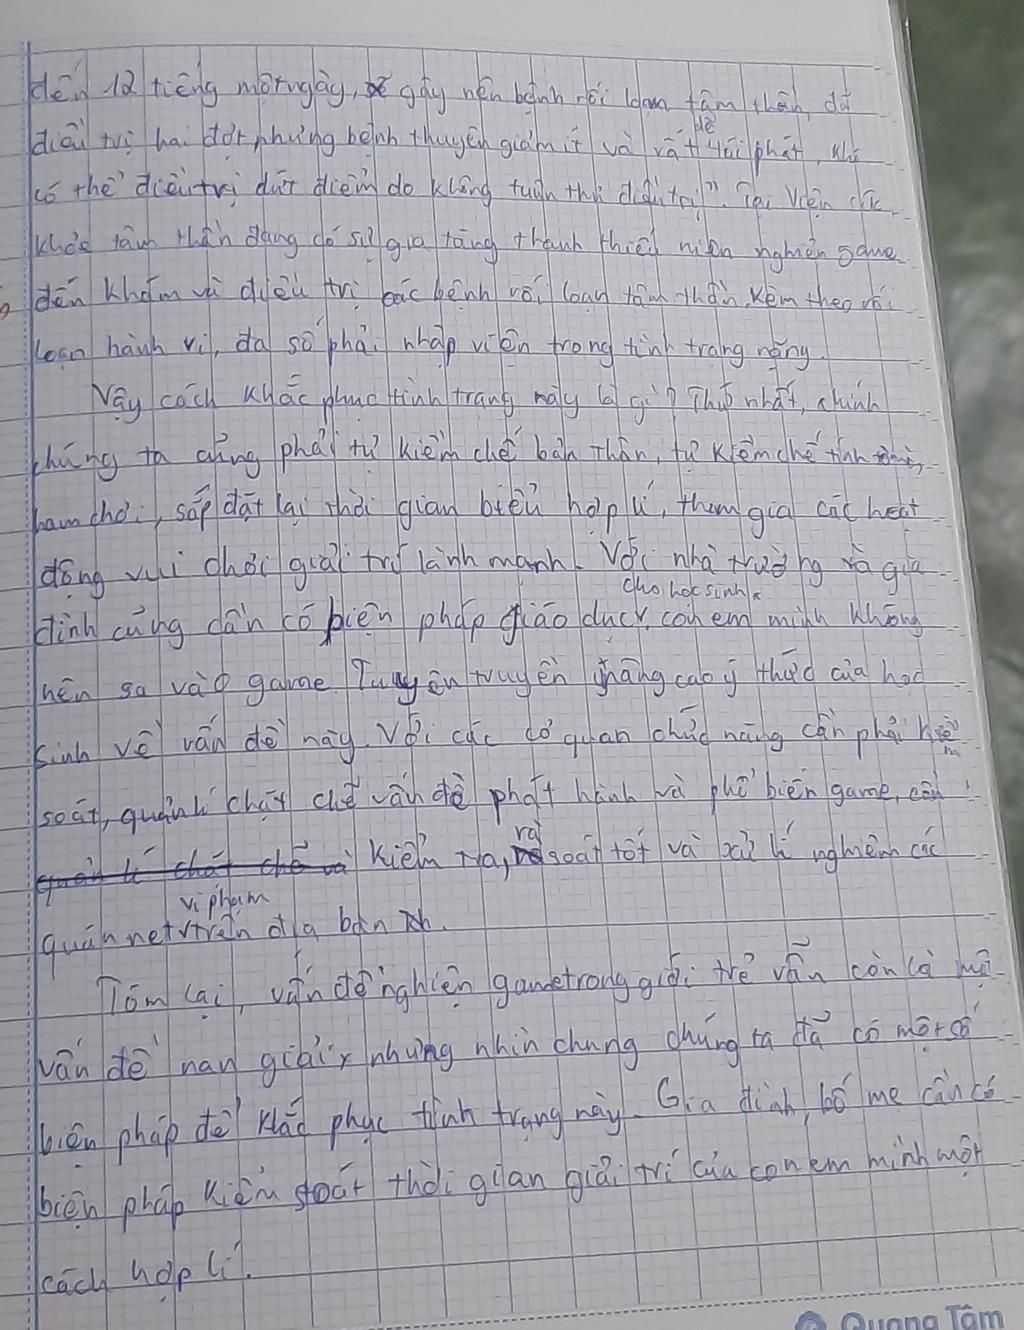 đến 12 tiếng một ngày, gây nên bệnh rối loạn tâm thần, đã
điều trị hai đợt nhưng bệnh thuyên giảm ít và rất dễ tái phát, khó
có thể điều trị dứt điểm do không tuân thủ điều trị". Tại Viện sức
khỏe tâm thần đang có sự gia tăng thanh thiếu niên nghiện game
đến khám và điều trị các bệnh rối loạn tâm thần, kèm theo rối
loạn hành vi, đa số phải nhập viện trong tình trạng nặng.
Vậy cách khắc phục tình trạng này là gì? Thứ nhất, chính
chúng ta cũng phải tự kiềm chế bản thân, tự kiềm chế tính
ham chơi, sắp đặt lại thời gian biểu hợp lí, tham gia các hoạt
động vui chơi giải trí lành mạnh. Với nhà trường và gia
đình cũng cần có biện pháp giáo dục cho học sinh, con em mình không
nên sa vào game. Tuyên truyền nâng cao ý thức của học
sinh về vấn đề này. Với các cơ quan chức năng cần phải kiểm
soát, quản lí chặt chẽ vấn đề phát hành và phổ biến game, cần
quản lí chặt chẽ và kiểm tra, rà soát tốt và xử lí nghiêm các
quán net vi phạm trên địa bàn
Tóm lại, vấn đề nghiện game trong giới trẻ vẫn còn là một
vấn đề nan giải, nhưng nhìn chung chúng ta đã có một số
biện pháp để khắc phục tình trạng này. Gia đình, bố mẹ cần có
biện pháp kiểm soát thời gian giải trí của con em mình một
cách hợp lí.
Quang Tâm